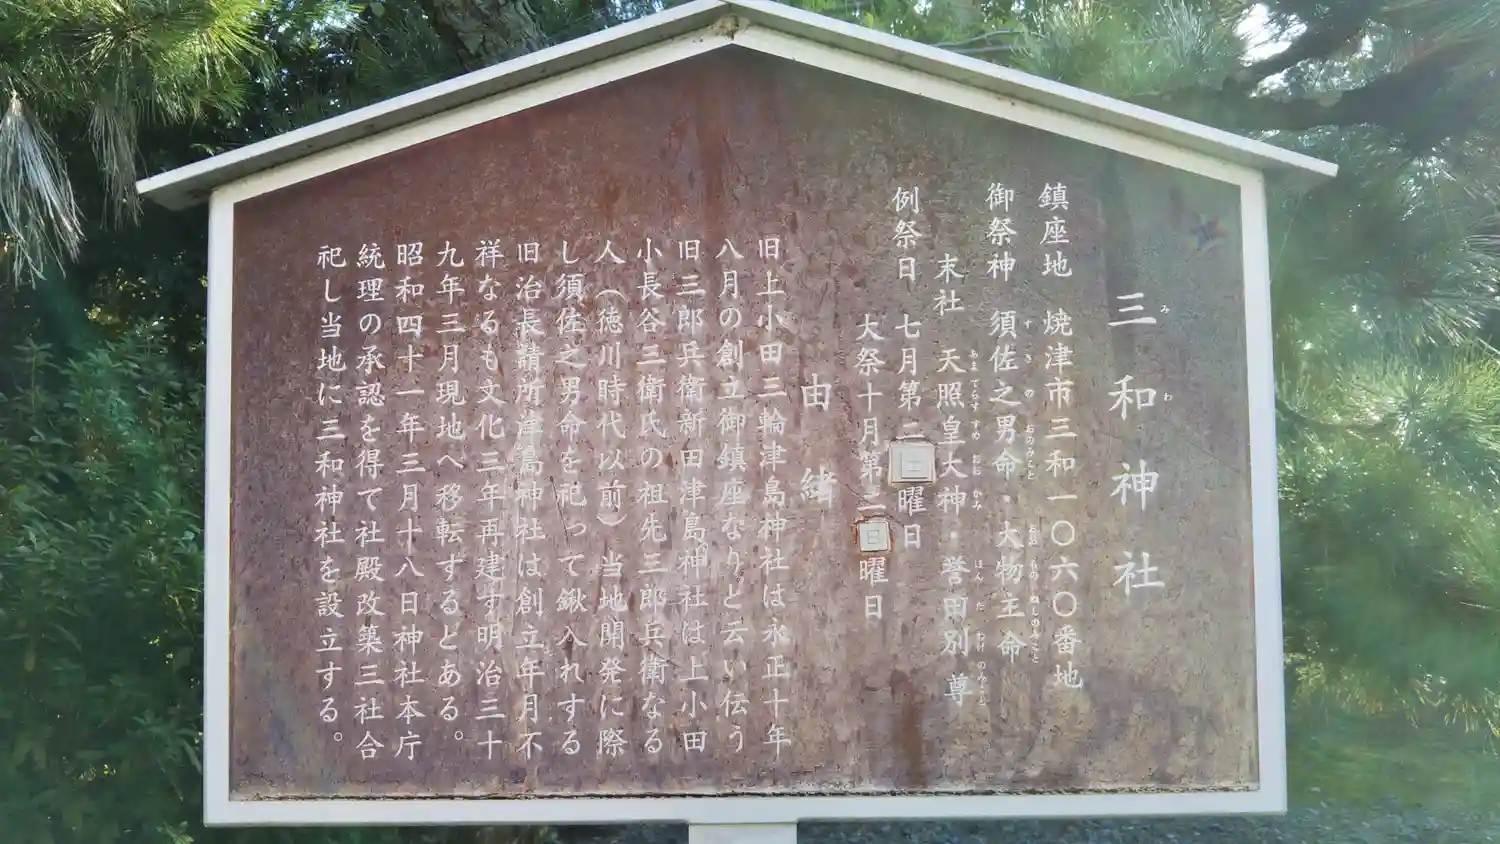 三和神社
みわ
鎮座地 焼津市三和一〇六〇番地
御祭神 須佐之男命・大物主命
末社 天照皇大神・誉田別尊
例祭日 七月第二土曜日
大祭十月第二日曜日
由緒
旧上小田三輪津島神社は永正十年
八月の創立御鎮座なりと云い伝う
旧三郎兵衛新田津島神社は上小田
小長谷三衛氏の祖先三郎兵衛なる
人（徳川時代以前）当地開発に際
し須佐之男命を祀って鍬入れする
旧治長請所津島神社は創立年月不
祥なるも文化三年再建す明治三十
九年三月現地へ移転するとある。
昭和四十一年三月十八日神社本庁
統理の承認を得て社殿改築三社合
祀し当地に三和神社を設立する。